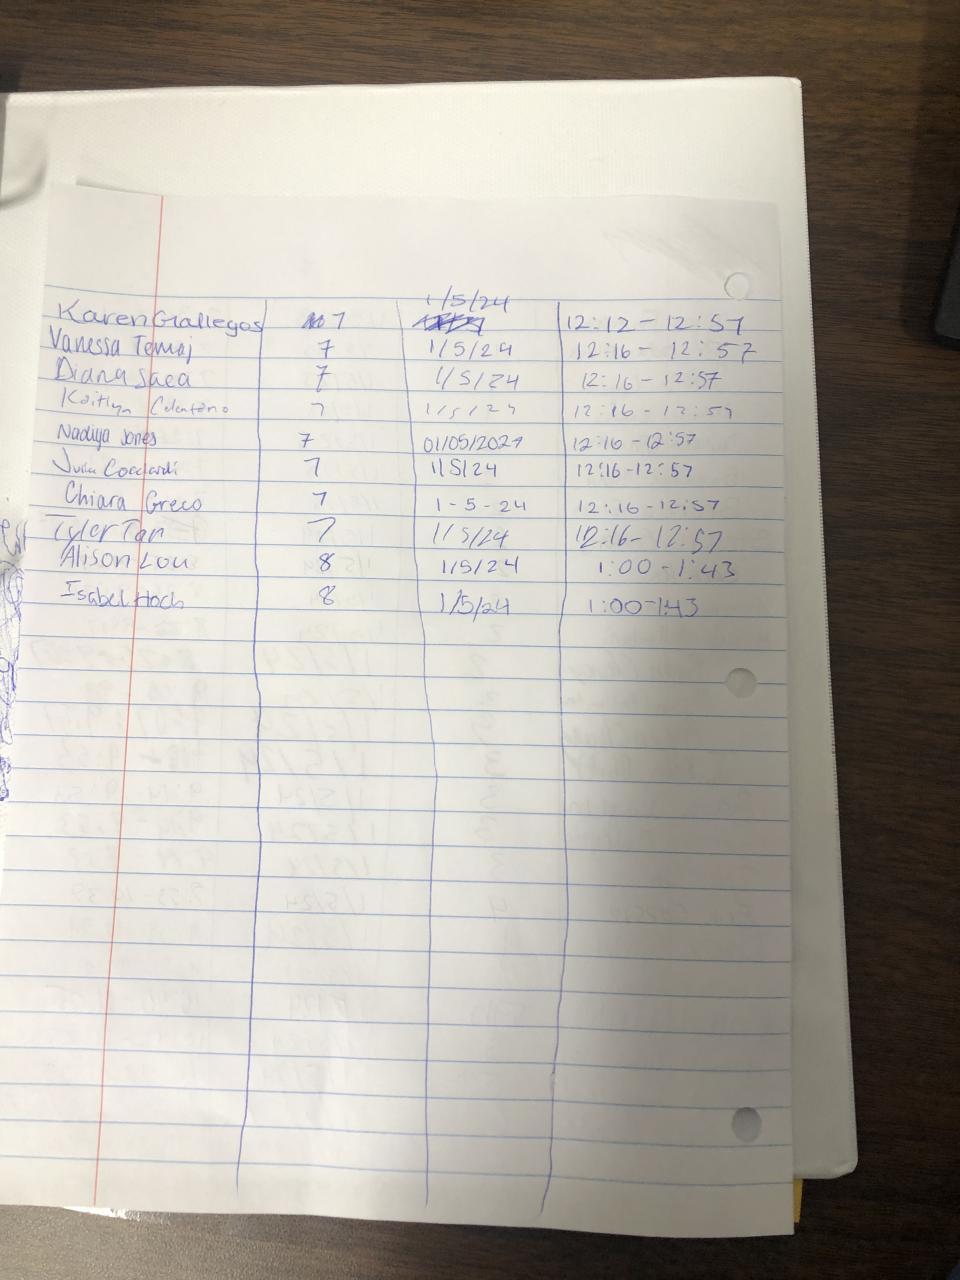 Karen Gallegos 7 1/5/24 12:12 - 12:57
Vanessa Temaj 7 1/5/24 12:16 - 12:57
Diana 7 1/5/24 12:16 - 12:57
Kaitlyn 7 1/5/24 12:16 - 12:57
Nadiya Jones 7 12:16 - 12:57
7 1/5/24 12:16 - 12:57
Chiara Greco 7 1 - 5 - 24 12:16 - 12:57
Tyler Tan 7 1/5/24 12:16 - 12:57
Alison Lou 8 1/5/24 1:00 - 1:43
Isabel Hoch 8 1/5/24 1:00 - 1:43